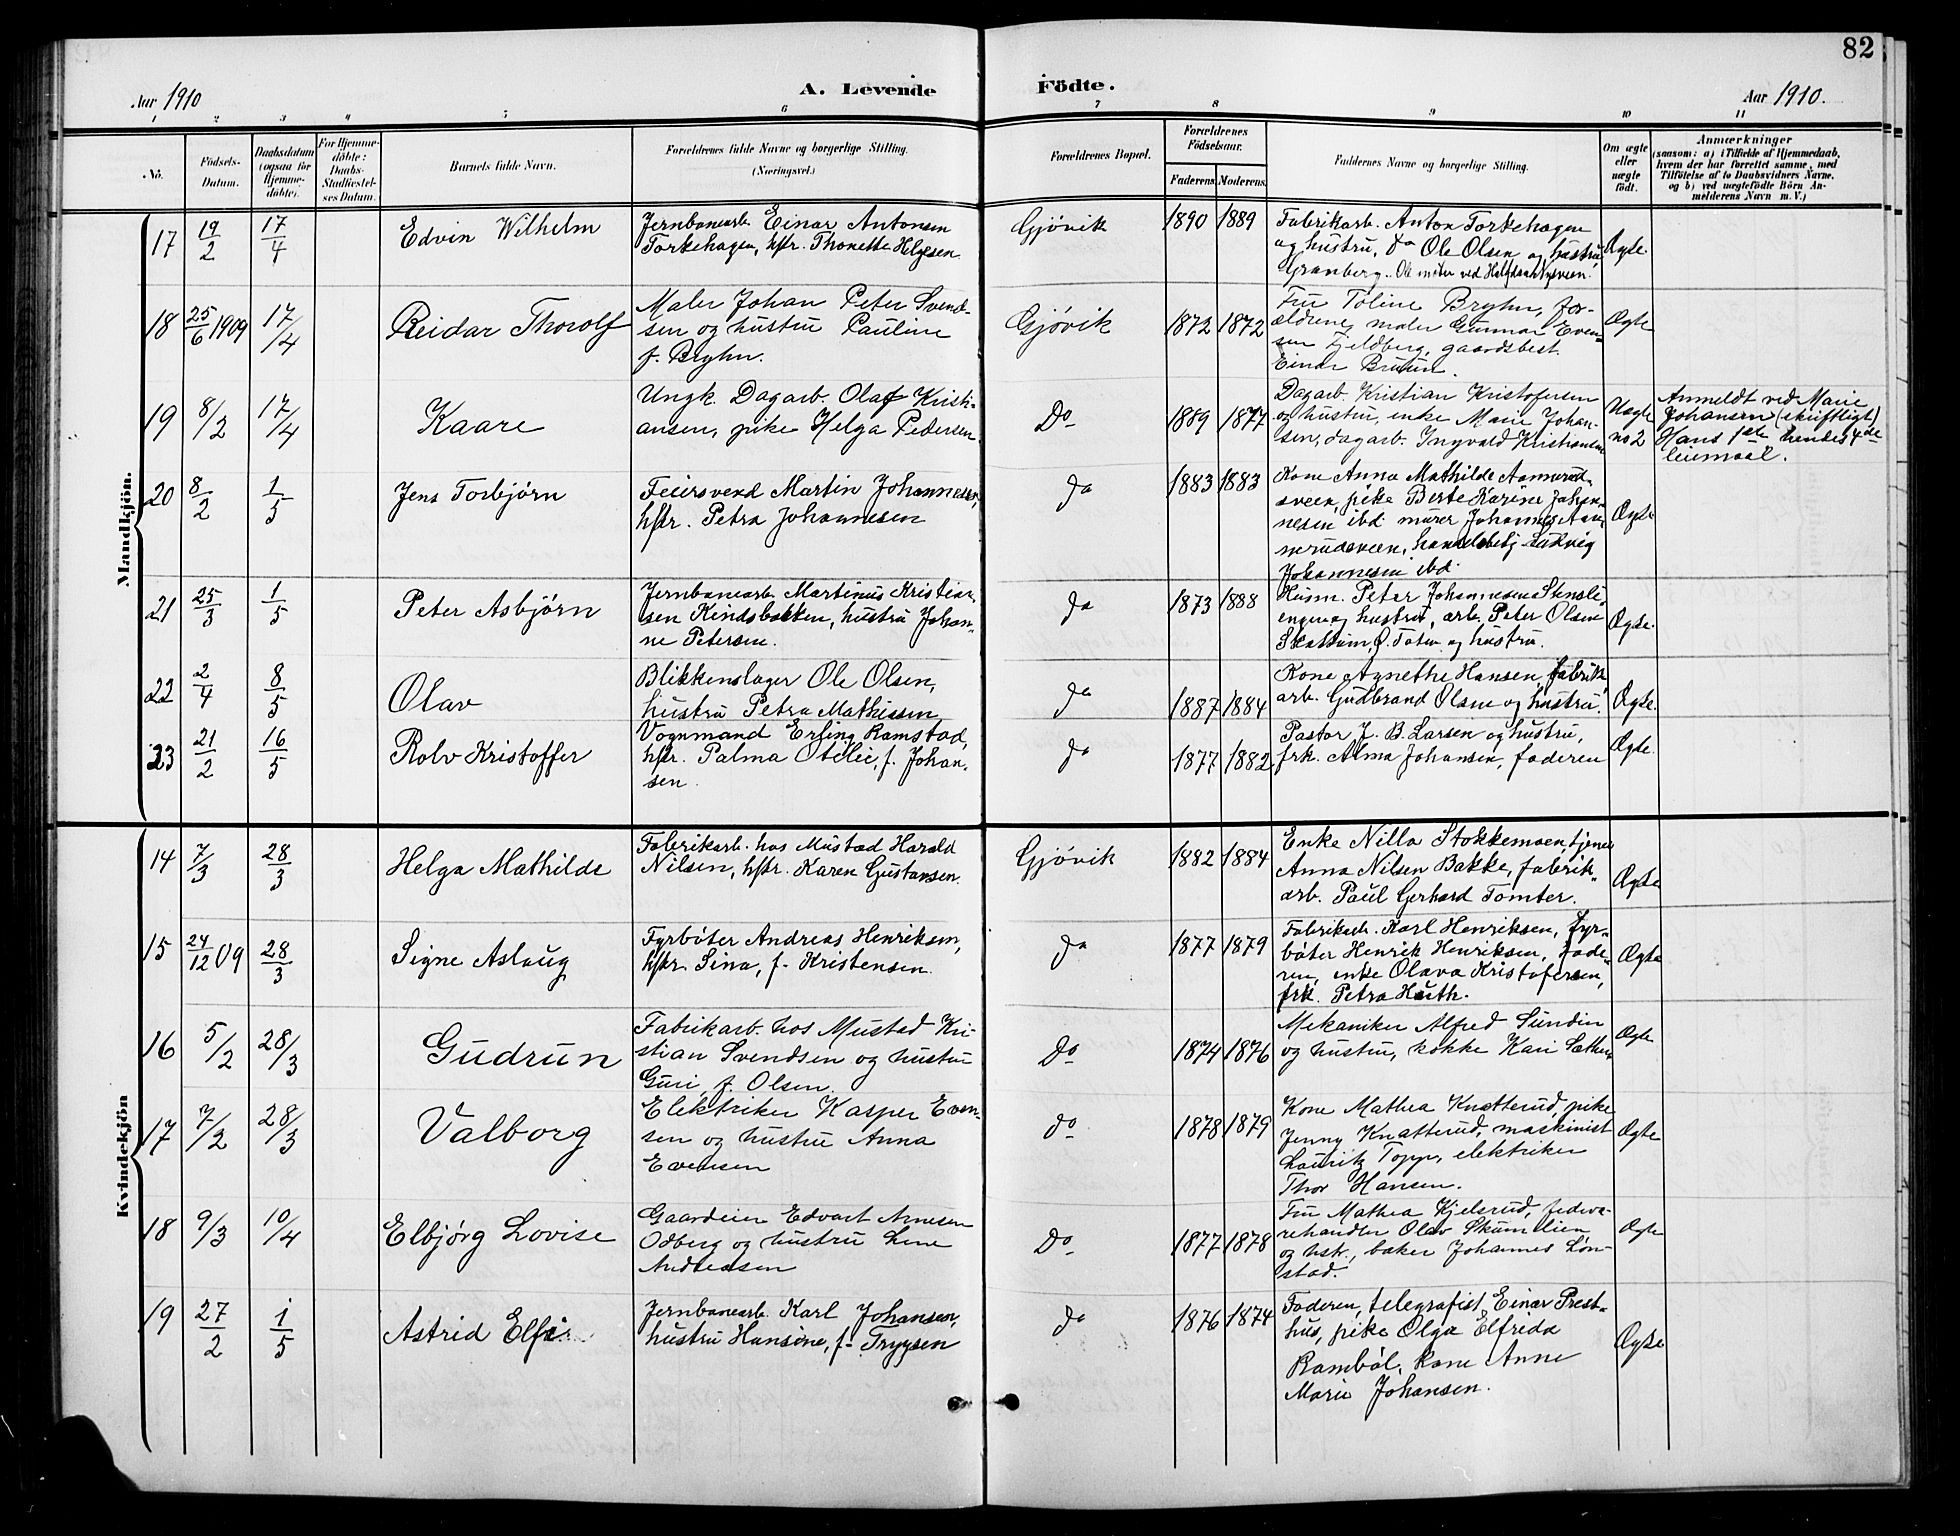 82
Aar 1910
A. Levende
Födte.
Aar 1910.
1 2 3 4 5 6 7 8 9 10 11
No.
Födsels-
Datum.
Daabsdatum
(ogsaa for
Hjemme-
döbte).
For Hjemme-
döbte:
Daabs-
Stadfæstel-
ses Datum.
Barnets fulde Navn.
Forældrenes fulde Navne og borgerlige Stilling.
(Næringsvei.)
Forældrenes Bopæl.
Forældrenes
Födselsaar.
Faderens. Moderens.
Faddernes Navne og borgerlige Stilling.
Om ægte
eller
uægte
födt.
Anmærkninger
(saasom: a) i Tilfælde af Hjemmedaab,
hvem der har forrettet samme, med
Tilföielse af to Daabsvidners Navne,
og b) ved uægtefödte Börn An-
melderens Navn m. V.)
Mandkjön.
17 19/2 17/4 Edvin Wilhelm
Jernbanearb. Einar Antonsen
Torkehagen, hstr. Thonette Helgesen
Gjøvik 1890 1889
Fabrikarb. Anton Torkehagen
og hustru, do Ole Olsen og hustru
Granberg. Ole møter ved
Ægte.
18 25/6 1909 17/4 Reidar Thorolf
Maler Johan Peter Svend-
sen og hustru Pauline
f. Bryhn.
Gjøvik 1872 1872
Fru Toline Bryhn, for-
ældrene, maler Gunnar Even-
sen Fjeldberg, gaardsbest.
Einar Bruun.
Ægte
19 8/2 17/4 Kaare
Ungk. Dagarb. Olaf Kristi-
ansen, pike Helga Pedersen
Do 1889 1877
Dagarb. Kristian Kristofersen
og hustru, enke Marie Johan-
sen, dagarb. Ingvald Kristiansen
Uægte
no 2
Anmeldt ved Marie
Johansen (skriftligt)
Hans 1ste hendes 4de
leiemaal.
20 8/2 1/5 Jens Torbjørn
Feiersvend Martin Johannesen,
hstr. Petra Johannesen
Do 1883 1883
Kone Anna Mathilde Aamerud-
sveen, pike Berte Karine Johan-
nesen ibd. murer Johannes Aam-
erudsveen, handelsbetj. Ludvig
Johannesen ibd.
Ægte
21 25/3 1/5 Peter Asbjørn
Jernbanearb. Martinus Kristian-
sen Kindsbakken, hustru Johan-
ne Petersen.
Do 1873 1888
Husm. Peter Johannesen Stensli-
engen og hustru, arb. Peter Olsen
Skattum, Ø. Toten og hustru.
Ægte.
22 2/4 8/5 Olav
Blikkenslager Ole Olsen,
hustru Petra Mathissen
Do 1887 1884
Kone Agnethe Hansen, fabrik-
arb. Gudbrand Olsen og hustru.
Ægte.
23 21/2 16/5 Rolv Kristoffer
Vognmand Erling Ramstad,
hstr. Palma Otelie, f. Johan-
sen.
Do 1877 1882
Pastor J. B. Larsen og hustru,
frk. Alma Johansen, faderen
Ægte.
Kvindekjön
14 7/3 28/3 Helga Mathilde
Fabrikarb. hos Mustad Harald
Nilsen, hstr. Karen Gustavsen.
Gjøvik 1882 1884
Enke Nilla Stokkemoen, tjener
Anna Nilsen Bakke, fabrik-
arb. Paul Gerhard Tomter.
Ægte
15 24/12 09 28/3 Signe Aslaug
Fyrbøter Andreas Henriksen,
hstr. Sina, f. Kristensen.
Do 1877 1879
Fabrikarb. Karl Henriksen, fyr-
bøter Henrik Henriksen, fade-
ren, enke Olava Kristofersen,
frk. Petra Huth.
Ægte
16 5/2 28/3 Gudrun
Fabrikarb. hos Mustad Kri-
stian Svendsen og hustru
Guri, f. Olsen.
Do 1874 1876
Mekaniker Alfred Sundin
og hustru, kokke Kari Sæther
Ægte
17 7/2 28/3 Valborg
Elektriker Kasper Even-
sen og hustru Anna
Evensen
do 1878 1879
Kone Mathea Knatterud, pike
Jenny Knatterud, maskinist
Lauritz Topp, elektriker
Thor Hansen.
Ægte
18 9/3 10/4 Elbjørg Lovise
Gaardeier Edvart Arnesen
Odberg og hustru Lene
Andreassen
Do 1877 1878
Fru Mathea Kjelsrud, fedeva-
rehandler Olav Skumlien
og hst., baker Johannes Løn-
stad.
Ægte
19 27/2 1/5 Astrid Elfi
Jernbanearb. Karl Johansen,
hustru Hansine, f. Trygsen
Do 1876 1874
Faderen, telegrafist Einar Prest-
hus, pike Olga Elfreda
Rambøl, kone Anne
Marie Johansen.
Ægte